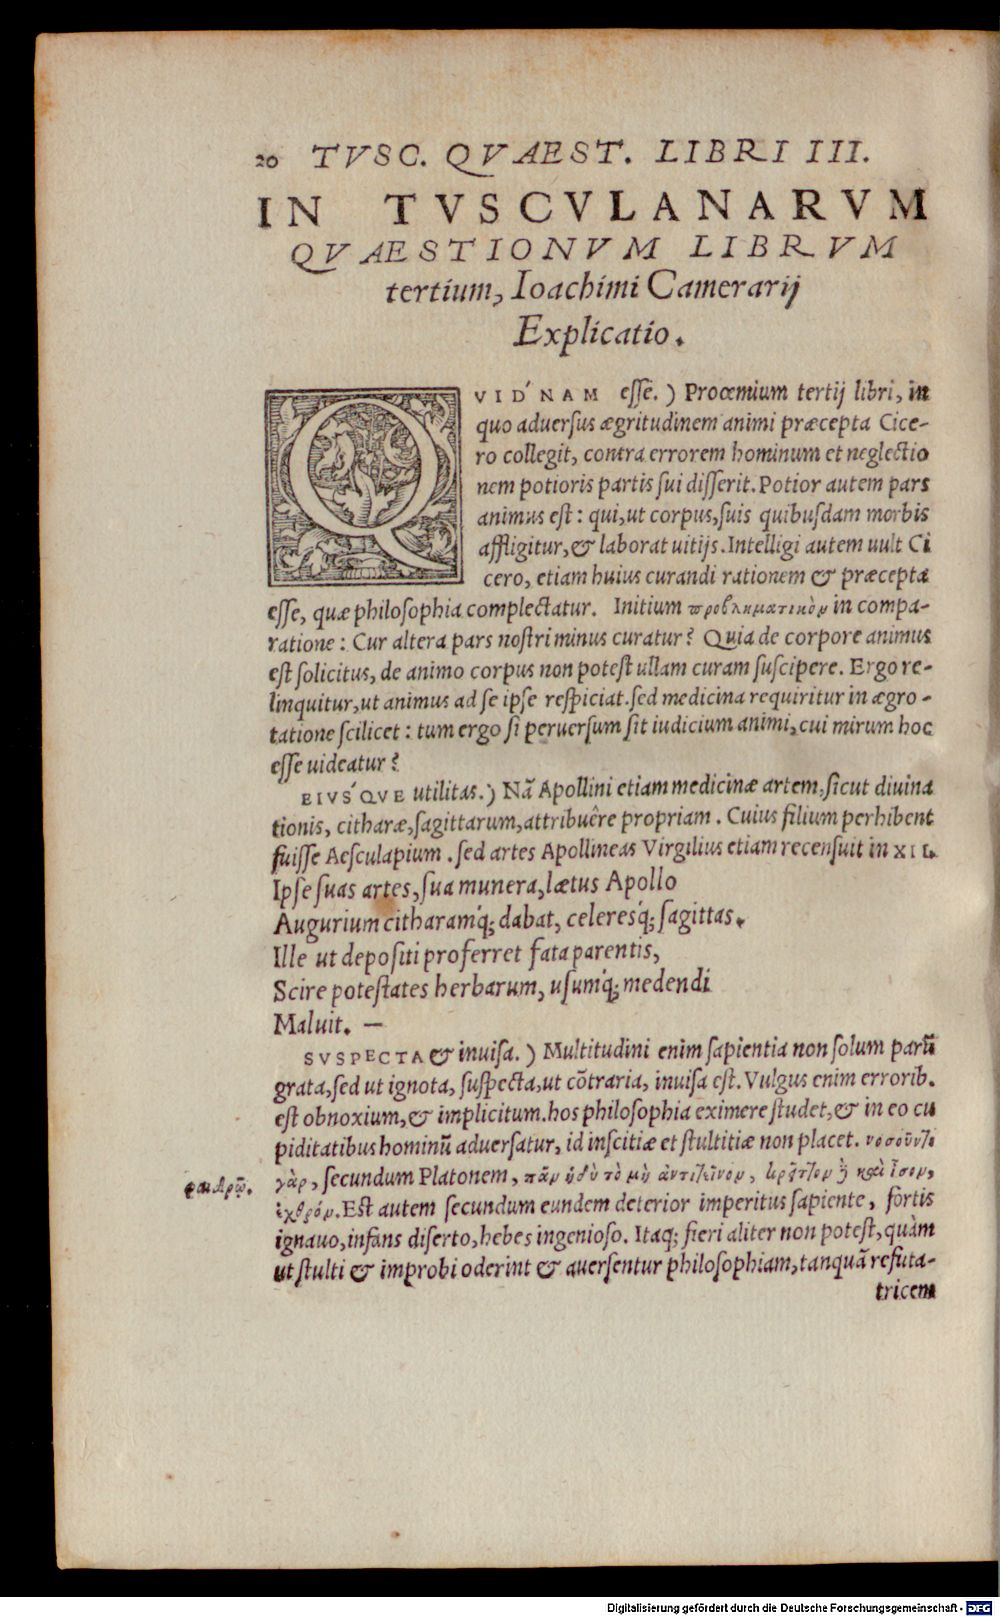 20 TVSC. QVAEST. LIBRI III.
IN TVSCVLANARVM
QVAESTIONVM LIBRVM
tertium, Ioachimi Camerarij
Explicatio.
QVID'NAM esse.) Prooemium tertij libri, in
quo aduersus ægritudinem animi præcepta Cice-
ro collegit, contra errorem hominum et neglectio
nem potioris partis sui disserit. Potior autem pars
animus est: qui, ut corpus, suis quibusdam morbis
affligitur, & laborat uitijs. Intelligi autem uult Ci
cero, etiam huius curandi rationem & præcepta
esse, quæ philosophia complectatur. Initium προβληματικὸν in compa-
ratione: Cur altera pars nostri minus curatur? Quia de corpore animus
est solicitus, de animo corpus non potest ullam curam suscipere. Ergo re-
linquitur, ut animus ad se ipse respiciat. sed medicina requiritur in ægro-
tatione scilicet: tum ergo si peruersum sit iudicium animi, cui mirum hoc
esse uideatur?
EIVS'QVE utilitas.) Nã Apollini etiam medicinæ artem, sicut diuina
tionis, citharæ, sagittarum, attribuêre propriam. Cuius filium perhibent
fuisse Aesculapium. sed artes Apollineas Virgilius etiam recensuit in XII.
Ipse suas artes, sua munera, lætus Apollo
Augurium citharamq́; dabat, celeresq́; sagittas.
Ille ut depositi proferret fata parentis,
Scire potestates herbarum, usumq́; medendi
Maluit. —
SVSPECTA & inuisa.) Multitudini enim sapientia non solum parũ
grata, sed ut ignota, suspecta, ut cõtraria, inuisa est. Vulgus enim errorib.
est obnoxium, & implicitum. hos philosophia eximere studet, & in eo cu
piditatibus hominũ aduersatur, id inscitiæ et stultitiæ non placet. νοσοῦντι
γὰρ, secundum Platonem, πᾶν ἡδὺ τὸ μὴ ἀντιτεῖνον, κρεῖττον ἢ καὶ ἴσον,
φαιδρῳ.
ἐχθρόν. Est autem secundum eundem deterior imperitus sapiente, fortis
ignauo, infans diserto, hebes ingenioso. Itaq; fieri aliter non potest, quàm
ut stulti & improbi oderint & auersentur philosophiam, tanquã refuta-
tricem
Digitalisierung gefördert durch die Deutsche Forschungsgemeinschaft - DFG